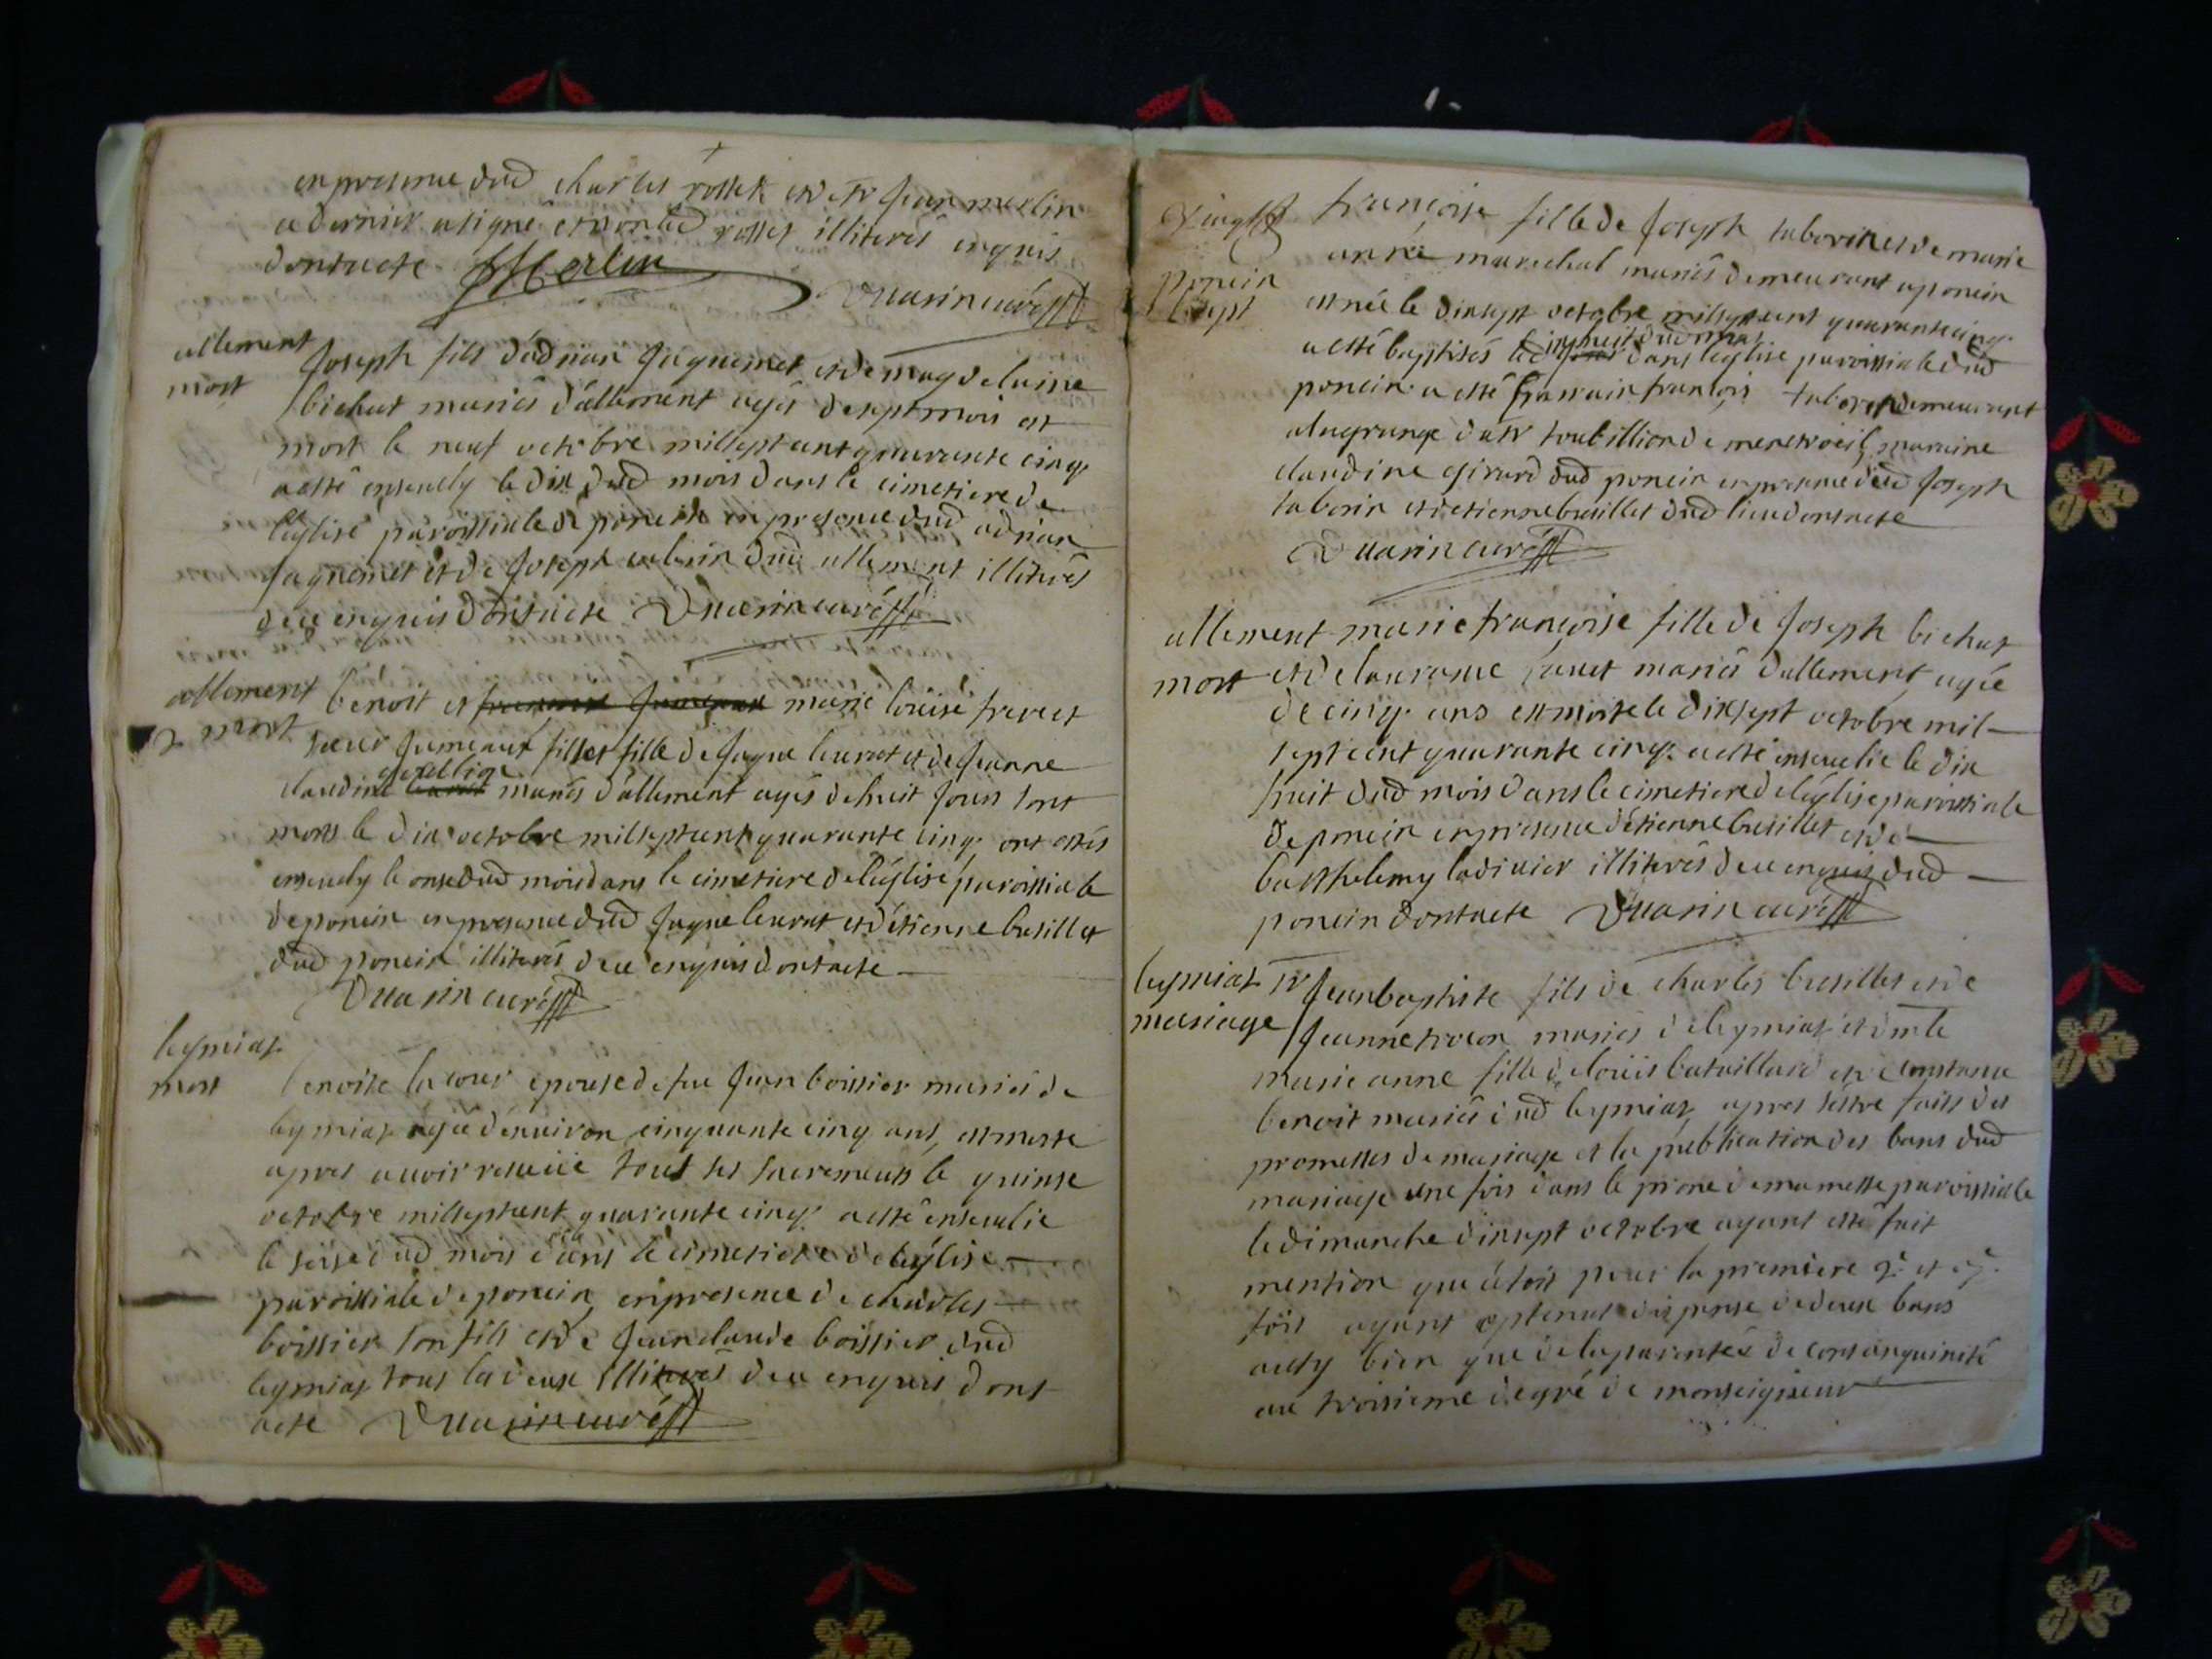 en presence dud charles rosset et de sr jean merlin
ce dernier a signé et non led rosset illiterés enquis
dont acte JMerlin
Duarin curé
allement
mort
Joseph fils d'adrian Jaguemet et de magdelaine
bichat mariés d'allement agés de sept mois est
mort le neuf octobre mil sept cent quarante cinq
a esté ensevely le dix dud mois dans le cimetiere de
l'église paroissiale de poncin en presence dud adrian
Jaguemet et de Joseph dud allement illiterés
de ce enquis dont acte Duarin curé
allement
2 mort
benoit et marie loüise frere et
soeur Jumeaux fils et fille de Jaque leurat et de Jeanne
claudine mariés d'allement agés de huit jours sont
morts le dix octobre mil sept cent quarante cinq ont estés
ensevely le onse dud mois dans le cimetiere de l'église paroissiale
de poncin en presence dud Jaque leurat et d'étienne busillet
dud poncin illiterés de ce enquis dont acte
Duarin curé
leymiat
mort
benoite lacour epouse de feu Jean boissier mariés de
leymiat agée d'environ cinquante cinq ans, est morte
apres avoir reseüe tous ses sacrements le quinse
octobre mil sept cent quarante cinq a esté ensevelie
le seise dud mois dans le cimetiere de l'église
paroissiale de poncin, en presence de charles
boissier son fils et de Jean claude boissier dud
leymiat tous les deux illiterés de ce enquis dont
acte Duarin curé
poncin
bapt
françoise fille de Joseph taborin et de marie
anne marechal mariés demeurant a poncin
est née le dix sept octobre mil sept cent quarante cinq
a esté baptisés le dix huit dud mois dans l'église paroissiale dud
poncin a esté parrain françois taborin demeurant
a la grange du sr toubillion de menetrüeil, maraine
claudine girard dud poncin en presence dud Joseph
taborin et d'etienne busillet dud lieu dont acte
Duarin curé
allement
mort
marie françoise fille de Joseph bichat
et de laurance mariés d'allement, agée
de cinq ans est morte le dix sept octobre mil
sept cent quarante cinq a esté ensevelie le dix
huit dud mois dans le cimetiere de l'église paroissiale
de poncin en presence d'étienne busillet et de
barthelemy ladivier illiterés de ce enquis dud
poncin dont acte Duarin curé
leymiat
mariage
sr Jean baptiste fils de charles busillet et de
Jeanne trocon mariés de leymiat et dmlle
marie anne fille de loüis bataillard et de constance
benoit mariés dud leymiat, apres s'estre faits des
promesses de mariage et la publication des bans dud
mariage une fois dans le prone de ma messe paroissiale
le dimanche dix sept octobre ayant esté fait
mention que c'étoit pour la premiere 2e et 3e
fois ayant optenut dispense de deux bans
aussy bien que de la parentée de consanguinité
au troisieme degré de monseigneur